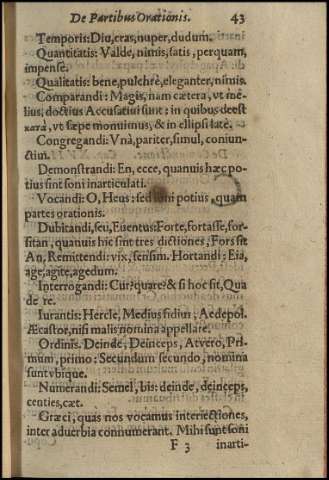 De Partibus Orationis. 43
Temporis: Diu, cras, nuper, dudum.
Quantitatis: Valde, nimis, satis, perquam,
impensè.
Qualitatis: bene, pulchrè, eleganter, nimis.
Comparandi: Magis, nam cætera, vt mé-
lius, doctius Accusatiui sunt: in quibus deest
κατὰ, vt sæpe monuimus, & in ellipsi latè.
Congregandi: Vnà, pariter, simul, coniun-
ctim.
Demonstrandi: En, ecce, quanuis hæc po-
tius sint soni inarticulati.
Vocandi: O, Heus: sed soni potius, quam
partes orationis.
Dubitandi, seu, Euentus: Forte, fortasse, for-
sitan, quanuis hic sint tres dictiones, Fors sit
An, Remittendi: vix, sensim. Hortandi: Eia,
age, agite, agedum.
Interrogandi: Cur? quare? & si hoc sit, Qua
de re.
Iurantis: Hercle, Medius fidius, Aedepol.
Æcastor, nisi malis nomina appellare.
Ordinis. Deinde, Deinceps, Atvero, Pri-
mum, primo: Secundum secundo, nomina
sunt vbique.
Numerandi: Semel, bis: deinde, deinceps,
centies, cæt.
Græci, quas nos vocamus interiectiones,
inter aduerbia connumerant. Mihi sunt soni
F 3 inarti-